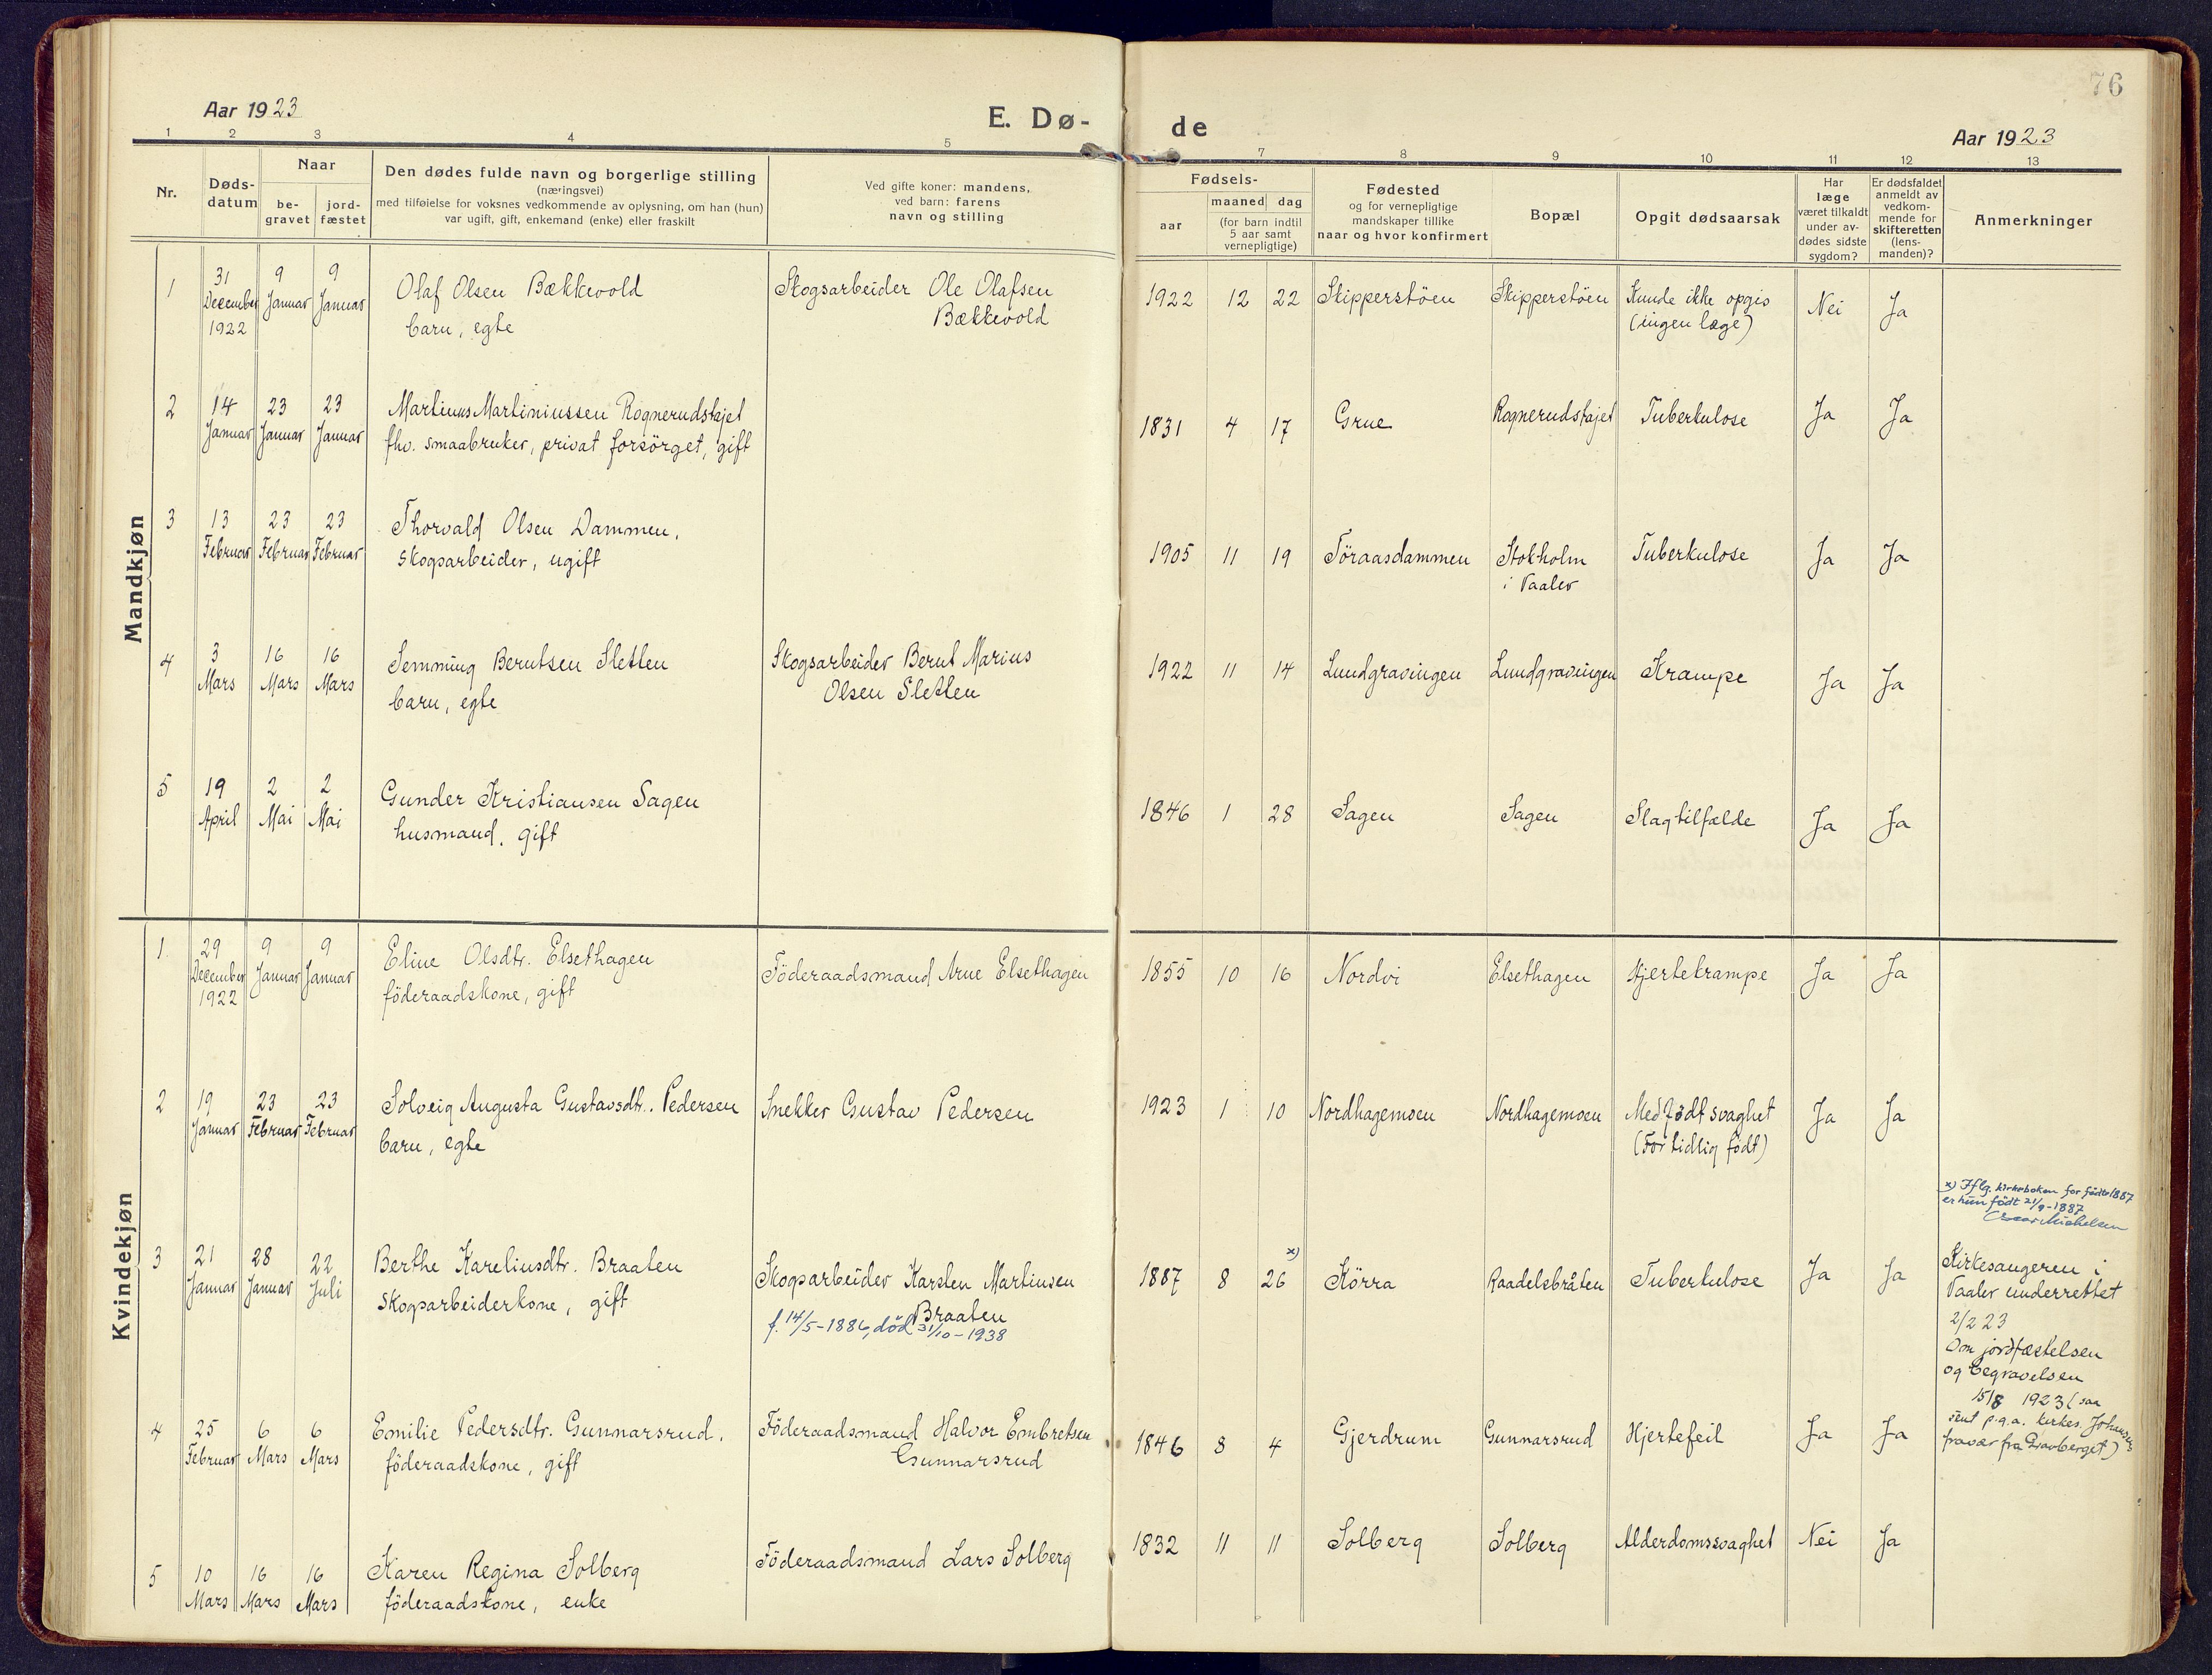 76
Aar 1923
E. Dø-
de
Aar 1923
1 2 3 4 5 6 7 8 9 10 11 12 13
Nr.
Døds-
datum
Naar
be-
gravet
jord-
fæstet
Den dødes fulde navn og borgerlige stilling
(næringsvei)
med tilføielse for voksnes vedkommende av oplysning, om han (hun)
var ugift, gift, enkemand (enke) eller fraskilt
Ved gifte koner: mandens,
ved barn: farens
navn og stilling
Fødsels-
aar
maaned dag
(for barn indtil
5 aar samt
vernepligtige)
Fødested
og for vernepligtige
mandskaper tillike
naar og hvor konfirmert
Bopæl
Opgit dødsaarsak
Har
læge
været tilkaldt
under av-
dødes sidste
sygdom?
Er dødsfaldet
anmeldt av
vedkom-
mende for
skifteretten
(lens-
manden)?
Anmerkninger
Mandkjøn
1 31 9 9 Olaf Olsen Bækkevold Skogsarbeider Ole Olafsen 1922 12 22 Skipperstöen Skipperstöen Kunde ikke opgis Nei Ja
December Januar Januar barn, egte Bækkevold (ingen læge)
1922
2 14 23 23 Martinus Martiniussen Rognerudstajet 1831 4 17 Grue Rognerudstajet Tuberkulose Ja Ja
Januar Januar Januar fhv. smaabruker, privat forsörget, gift
3 13 23 23 Thorvald Olsen Dammen, 1905 11 19 Töraasdammen Stokholm Tuberkulose Ja Ja
Februar Februar Februar skogsarbeider, ugift i Vaaler
4 3 16 16 Semming Berntsen Sletten Skogsarbeider Bernt Marius 1922 11 14 Lundgravingen Lundgravingen Krampe Ja Ja
Mars Mars Mars barn, egte Olsen Sletten
5 19 2 2 Gunder Kristiansen Sagen 1846 1 28 Sagen Sagen Slagtilfælde Ja Ja
April Mai Mai husmand, gift
Kvindekjøn
1. 29 9 9 Eline Olsdtr. Elsethagen Föderaadsmand Arne Elsethagen 1855 10 16 Nordvi Elsethagen Hjertekrampe Ja Ja
December Januar Januar föderaadskone, gift
1922
2 19 23 23 Solveig Augusta Gustavsdtr. Pedersen Snekker Gustav Pedersen 1923 1 10 Nordhagemoen Nordhagemoen Medfødt svaghet Ja Ja
Januar Februar Februar barn, egte (For tidlig födt)
x) Iflg. kirkeboken for födte 1887
er hun födt 21/9-1887
Michelsen
3 21 28 22 Berthe Kareliusdtr. Braaten Skogsarbeider Karsten Martinsen 1887 8 26 x) Körra Raadelsbråten Tuberkulose Ja Ja
Januar Januar Juli skogsarbeiderkone, gift Braaten
f. 14/5-1886, död 31/10-1938
Kirkesangeren i
Vaaler underrettet
2/2 23
Om jordfæstelsen
og begravelsen
15/8 1923 (saa
sent p.g.a. kirkes. Johansens
fravær fra Gravberget)
4 25 6 6 Emilie Pedersdtr. Gunnarsrud, Föderaadsmand Halvor Embretsen 1846 8 4 Gjerdrum Gunnarsrud Hjertefeil Ja Ja
Februar Mars Mars föderaadskone, gift Gunnarsrud
5 10 16 16 Karen Regina Solberg Föderaadsmand Lars Solberg 1832 11 11 Solberg Solberg Alderdomssvaghet Nei Ja
Mars Mars Mars föderaadskone, enke